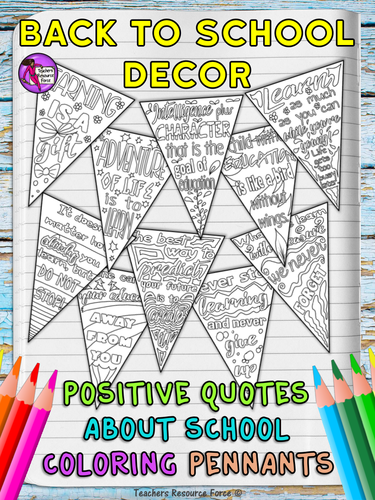 BACK TO SCHOOL
DECOR
Teachers
Resource
Force
LEARNING
IS A
gift
Intelligence plus
CHARACTER
that is the
goal of
education
Learn
as much
as you can
while you're
young
life
gets
ADVENTURE
OF LIFE
IS TO
LEARN
child without
EDUCATION
is like a bird
without
wings
It doesn't
matter how
slowly you
learn, but
DO NOT
STOP!
The best
way to
predict
your future
is to
create
it
learn
we never
FORGET
your education
AWAY
FROM
YOU
never stop
learning
and never
give
up
POSITIVE QUOTES
ABOUT SCHOOL
COLORING PENNANTS
Teachers Resource Force ©